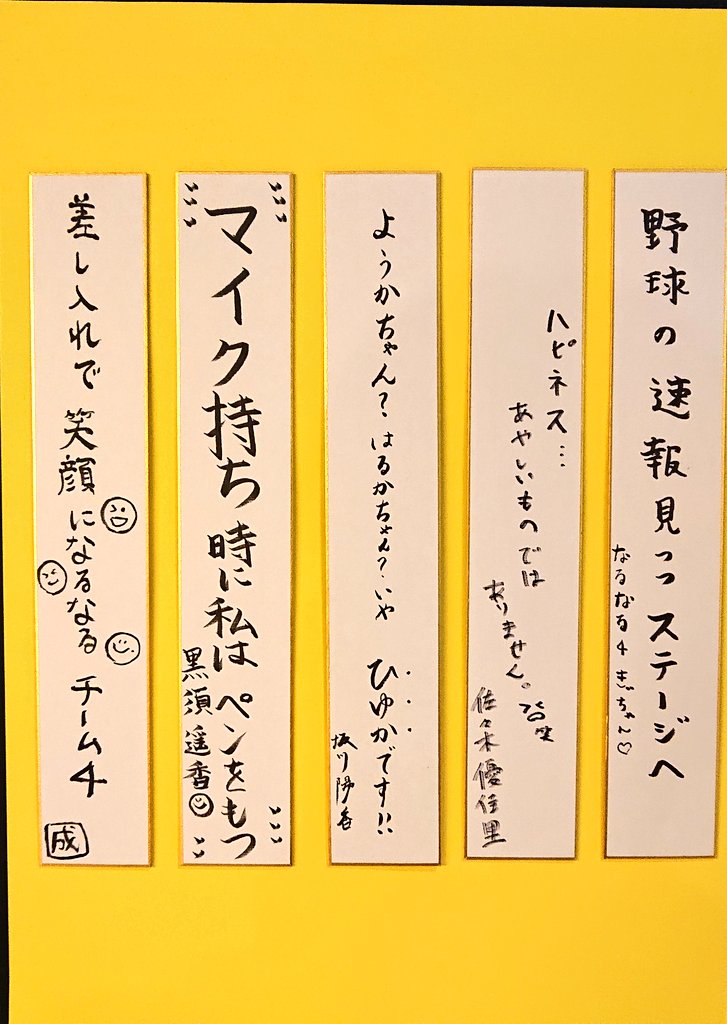 野球の速報見つつステージへ
なるなる4 ぎっちゃん♡
ハピネス…
あやしいものでは
ありません。
佐々木優佳里
ようかちゃん?はるかちゃん?いや
ひゆかです!!
坂川陽香
マイク持ち時に私はペンをもつ
黒須遥香
差し入れで笑顔になるなるチーム4
成